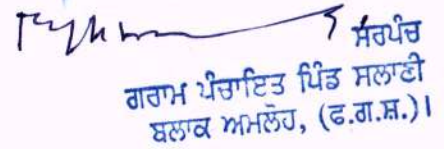 ਸਰਪੰਚ
ਗਰਾਮ ਪੰਚਾਇਤ ਪਿੰਡ ਸਲਾਣੀ
ਬਲਾਕ ਅਮਲੋਹ, (ਫ.ਗ.ਸ.)।